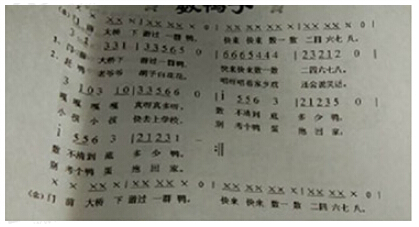 数鸭子
X X X X X X X 0 | X X X X X X | X X X X X 0 |
(白)门 前 大桥 下 游过 一群 鸭, 快来 快来 数一 数 二四 六七 八。
3 1 3 3 1 | 3 3 5 6 5 0 | 6 6 6 5 4 4 4 | 2 3 2 1 2 0 |
1. 门前 大桥下 游过一群鸭, 快来快来数一数 二四六七八。
2. 赶鸭 老爷爷 胡子白花花, 唱呀唱着家乡戏 还会说笑话。
3 1 0 3 1 0 | 3 3 5 6 6 0 | i 5 5 6 3 | 2 1 2 3 5 0 |
嘎 嘎 嘎 嘎 真呀真多呀, 数 不清到 底 多 少 鸭,
小 孩 小 孩 快去上学校, 别 考个鸭 蛋 抱 回 家。
i 5 5 6 3 | 2 1 2 3 1 - :||
数 不清到 底 多 少 鸭。
别 考个鸭 蛋 抱 回 家。
(白)门 前 大桥 下 游过 一群 鸭, 快来 快来 数一 数 二四 六七 八。